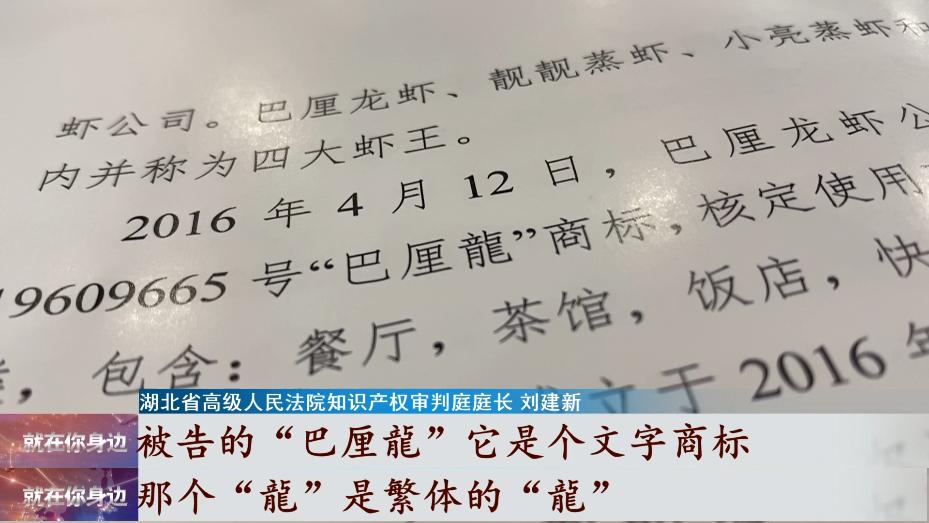 虾公司。巴厘龙虾、靓靓蒸虾、小亮蒸虾和
内并称为四大虾王。
2016 年 4 月 12 日，巴厘龙虾公
19609665 号“巴厘龍”商标，核定使用
，包含：餐厅，茶馆，饭店，快
立于 2016 年
湖北省高级人民法院知识产权审判庭庭长 刘建新
就在你身边
被告的“巴厘龍”它是个文字商标
就在你身边
那个“龍”是繁体的“龍”